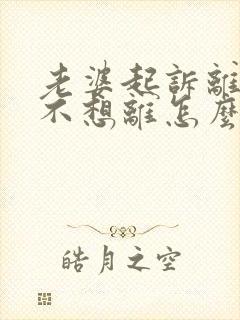 老婆起訴離
不想離怎麼
皓月之空